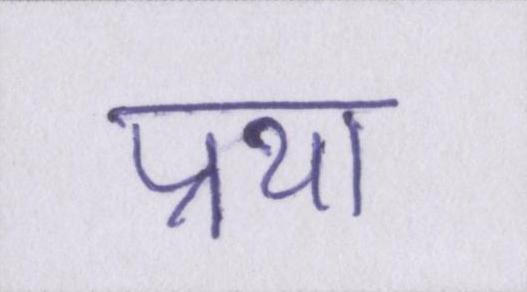 प्रथा